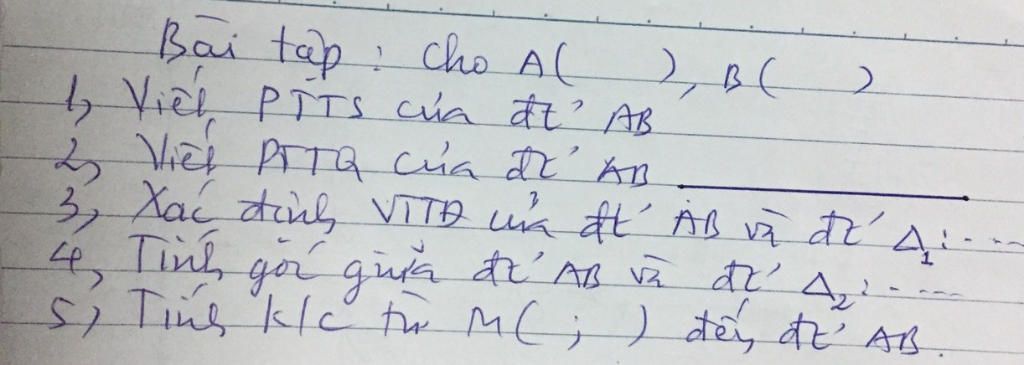 Bài tập : Cho A( ), B( )
1, Viết PTTS của đt' AB
2, Viết PTTQ của đt' AB
3, Xác định VTTĐ của đt' AB và đt' Δ₁: ....
4, Tính góc giữa đt' AB và đt' Δ₂: ....
5, Tính k/c từ M( ; ) đến đt' AB.